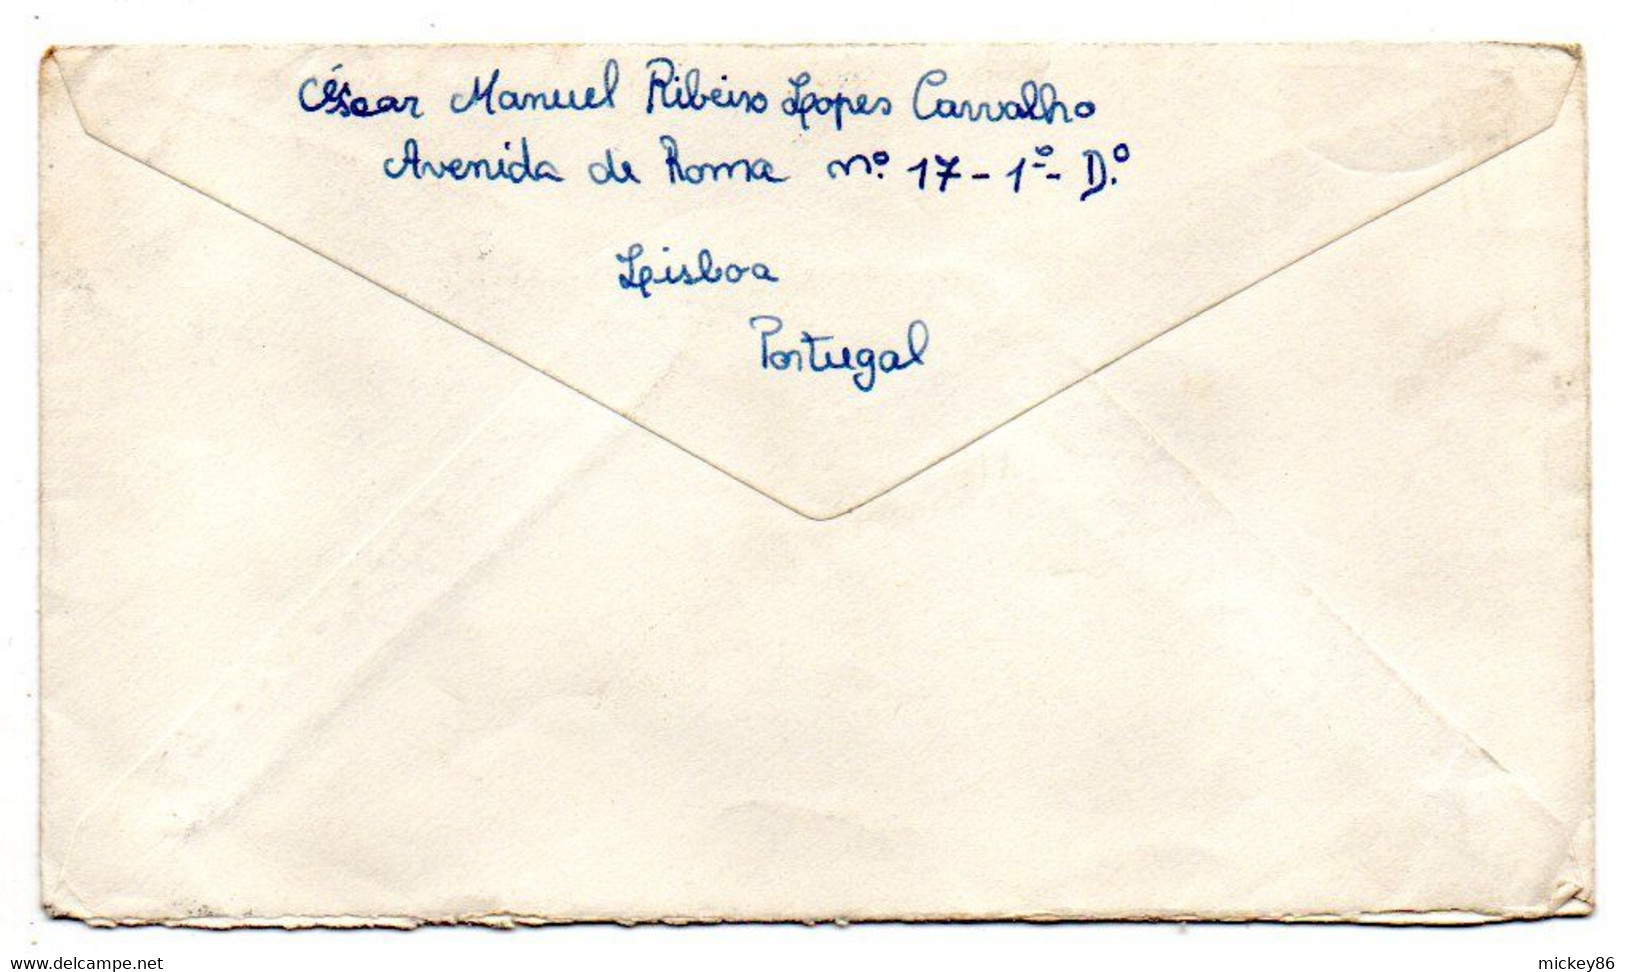 César Manuel Ribeiro Lopes Carvalho
Avenida de Roma nº. 17-1º- D.º
Lisboa
Portugal
www.delcampe.net
mickey86